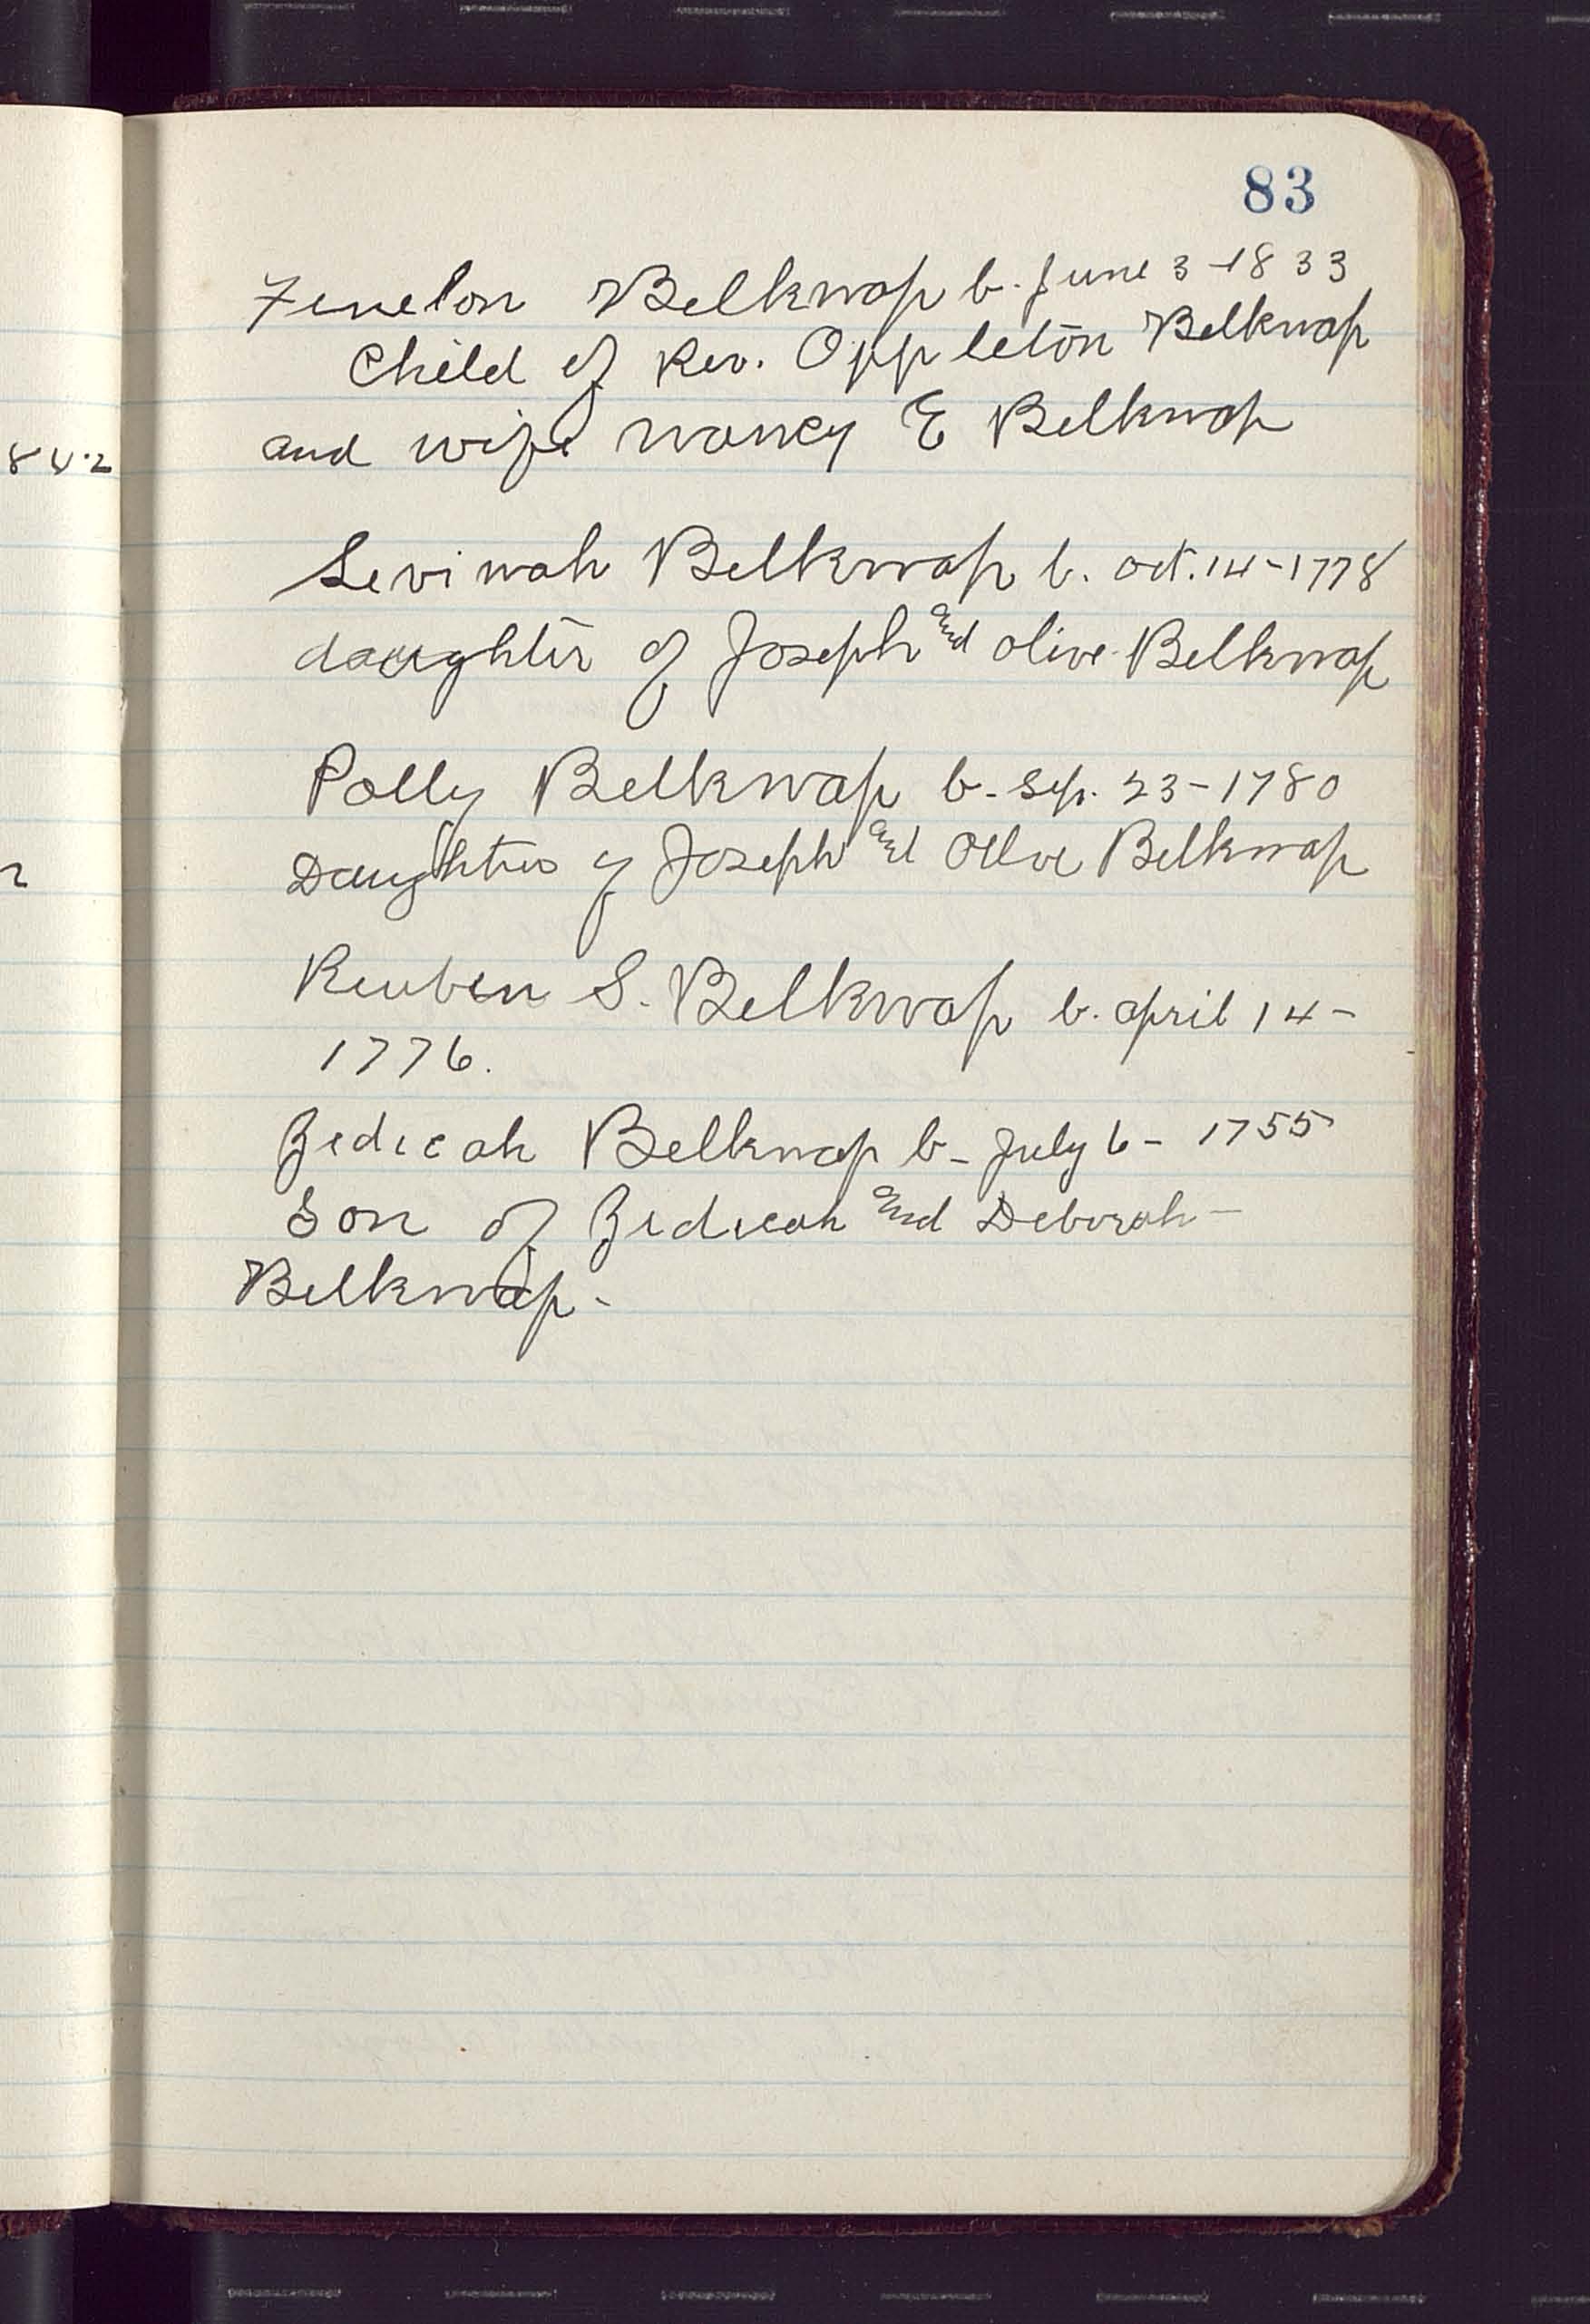 83
Fenelon Belknap b. June 3 - 1833
Child of Rev. Oppleton Belknap
and wife Nancy E Belknap
842
Levinah Belknap b. Oct. 14 - 1778
daughter of Joseph and Olive Belknap
Polly Belknap b. Sep. 23 - 1780
Daughter of Joseph and Olive Belknap
Reuben S. Belknap b. April 14 -
1776.
Zedicah Belknap b - July 6 - 1755
Son of Zedicah and Deborah -
Belknap -